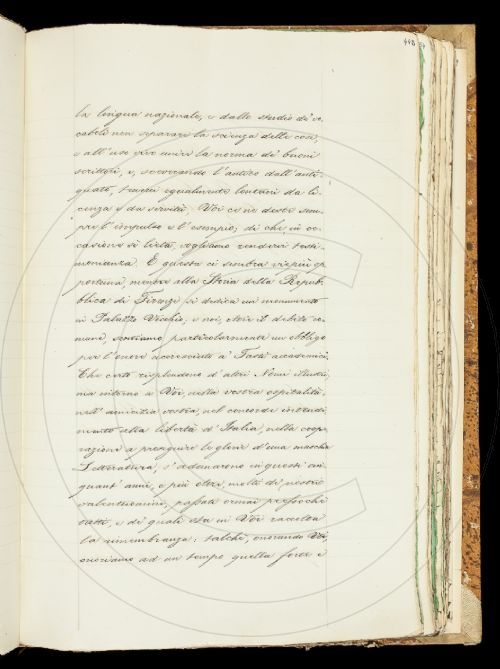 la lingua nazionale, e dallo studio de' vo-
caboli non separare la scienza delle cose,
e all'uso vivo unire la norma de' buoni
scrittori, e, scevrando l'antico dall'anti-
quato, tenersi egualmente lontani da li-
cenza e da servitù. Voi ce ne deste sem-
pre l'impulso e l'esempio; di che, in oc-
casione sì lieta, vogliamo rendervi testi-
monianza. E questa ci sembra vieppiù op-
portuna, mentre alla Storia della Repub-
blica di Firenze si dedica un monumento
in Palazzo Vecchio; e noi, oltre il debito co-
mune, sentiamo particolarmente un obbligo
per l'onore accresciuto a' Fasti accademici,
Che certo risplendono d'altri Nomi illustri;
ma intorno a Voi, nella vostra ospitalità,
nell'amicizia vostra, nel concorde intendi-
mento della libertà d'Italia, nella coope-
razione a proseguire le glorie d'una maschia
Letteratura, s'adunarono in questi cin-
quant'anni, e più oltre, molti de' nostri
valentuomini, passati ormai pressochè
tutti, e de' quali sta in Voi raccolta
la rimembranza: talchè, onorando Voi,
onoriamo ad un tempo quella forte e